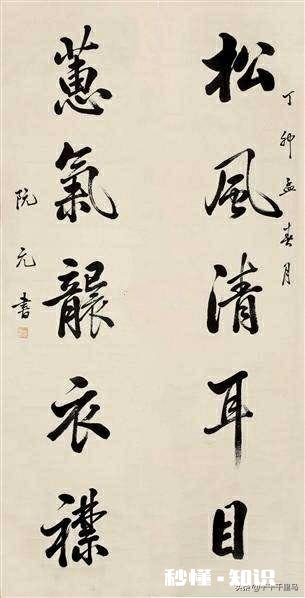 丁卯孟春月
松風清耳目
蕙氣襲衣襟
阮元書
秒懂·知识